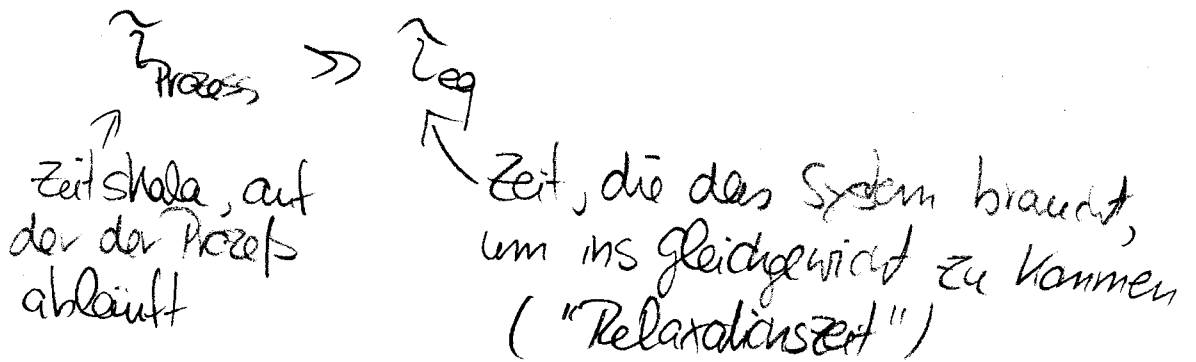 τ̃_Prozess ≫ τ̃_eq
Zeitskala, auf
der der Prozeß
abläuft
Zeit, die das System braucht,
um ins Gleichgewicht zu kommen
("Relaxationszeit")